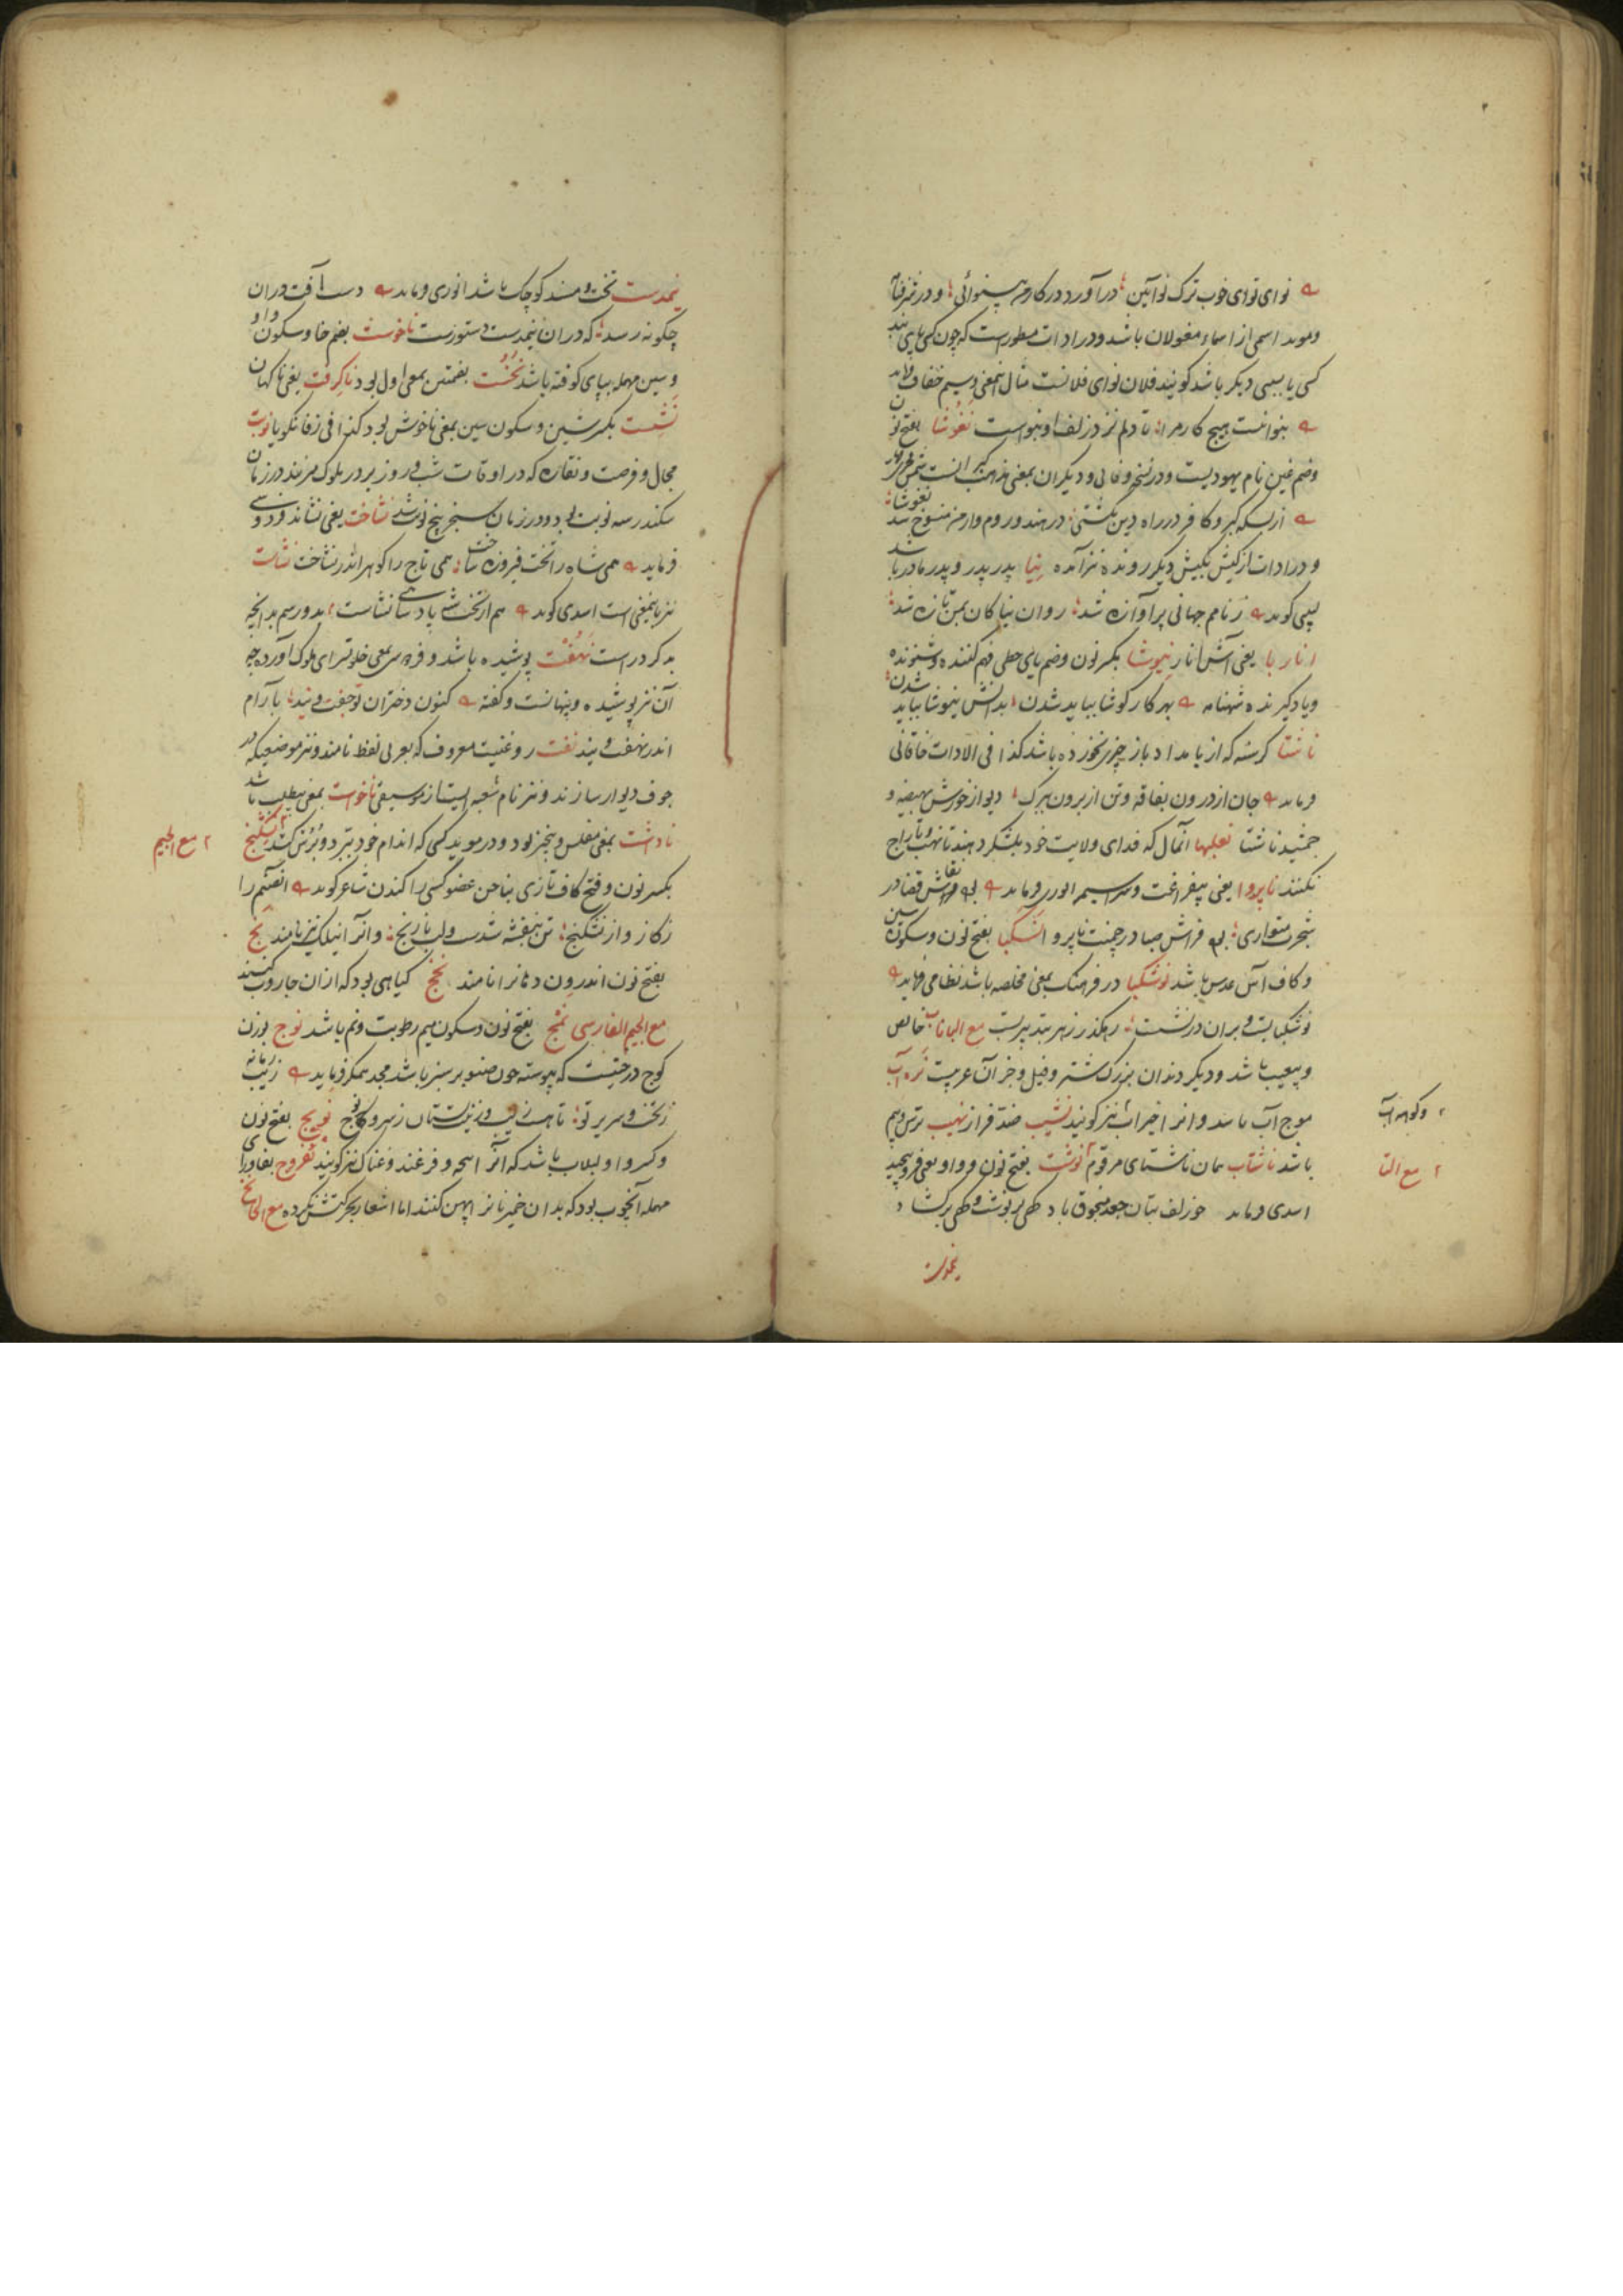 نوای نوای خوب ترک نوآیین درآورد در کار من بینوائی و در
و موید اسمی از اسماء مغولان باشد و در ادات مسطورست که چون کسی بپای بند
کسی یا سببی دیگر باشد گویند فلان نوای فلانست مثال این معنی وسیم خفاف فرماید
بنواخت هیچ کار مرا تا دلم نزد زلف او بنواست نغوشا بفتح نون
و ضم غین نام یهودیست و در نسخه وفائی و دیگران بمعنی مذهب گبرانست
از بسکه گبر و کافر در راه دین بکشتی در هند و روم و ارمن منسوخ شد نغوشا
و در ادات از کیش بکیش دیگر رونده نیز آمده نیا پدر پدر و پدر مادر باشد
لبیبی گوید ز نامم جهانی پرآوازه شد روان نیاکان بمن تازه شد
انار با یعنی آش انار نیوشا بکسر نون و ضم یای حطی فهم کننده و شنونده
و یادگیرنده شهنامه بهر کار کوشا بباید شدن بدانش نیوشا بباید شدن
ناشتا گرسنه که از بامداد باز چیزی نخورده باشد کذا فی الادات خاقانی
فرماید جان از درون بفاقه و تن از برون ببرگ دیو از خورش بهیضه و
جمشید ناشتا نعلبها آنمال که فدای ولایت خود بلشکر دهند تا نهب و تاراج
نکنند ناپروا یعنی بیفراغت و سراسیمه انوری فرماید نه نقاش قضا در
شجرت متواری نه فراش صبا در چمنت ناپروا نسکبا بفتح نون و سکون سین
و کاف آش عدس باشد نوشکیبا در فرهنگ بمعنی مخلصه باشد نظامی فرماید
مع البا ناب خالص
و بیعیب باشد و دیگر دندان بزرگ شتر و فیل و جز آن عربیست نره آب
موج آب باشد و آنرا خیزاب نیز گویند نشیب ضد فراز نهیب ترس و بیم
باشد ناشتاب همان ناشتای مرقوم نوشت بفتح نون و واو یعنی فرو پیچید
اسدی فرماید چو زلف بتان جعد منجوق باد گهی برنوشت و گهی برگشاد
نیمدست
و کوهه آب
مع التا
نیمدست تخت و مسند کوچک باشد انوری فرماید دست آفت دران
چگونه رسد که دران نیمدست دستورست ناخوست بضم خا و سکون واو
و سین مهمله بپای کوفته باشد نخست بضمتین بمعنی اول بود ناگرفت یعنی ناگهان
نشست بکسر شین و سکون سین بمعنی ناخوش بود کذا فی زفانگویا نوبت
مجال و فرصت و نقاره که در اوقات شب و روز بر در ملوک میزنند در زمان
سکندر سه نوبت بود و در زمان سنجر پنج نوبت شد نشاخت یعنی نشاند فردوسی
فرماید همی شاه را تخت فیروزه ساخت همی تاج را گوهر اندر نشاخت نشاست
نیز باینمعنی است اسدی گوید هم از تخت شاهی نشاست
نهفت پوشیده باشد و فرهنگ بمعنی خلوتسرای ملوک آورده چه
آن نیز پوشیده و پنهانست و گفته کنون دختران تو جفت ویند بآرام
اندر نهفت ویند نفت روغنیست معروف که بعربی نفط نامند و نیز موضعیکه در
جوف دیوار سازند و نیز نام شعبه ایست از موسیقی ناخواست بمعنی بیطلب باشد
ناداشت بمعنی مفلس و بیچیز بود و در موید کسی که اندام خود ببرد نشکنج
بکسر نون و فتح کاف تازی بناخن عضو کسی را کندن شاعر گوید آن صنم را
ز گاز و از نشکنج تن بنفشه شدست و لب نارنج و آنرا نیلک نیز نامند نج
بفتح نون اندرون دهانرا نامند نخج گیاهی بود که ازان جاروب کنند
مع الجیم الفارسی نمج بفتح نون و سکون میم رطوبت و نم باشد نوج بوزن
کوج درختیست که پیوسته چون صنوبر سبز باشد مجد همگر فرماید زیب زمانه
ز تخت و سریر تو تا هست زیب و زینت بستان ز سرو و نوج نویج بفتح نون
و کسر واو لبلاب باشد نغروج بغا و رای
مهمله آنچوب بود که بدان خمیر نانرا پهن کنند اما اشعار بحرکتش نکرده مع الخا نخ
مع الجیم